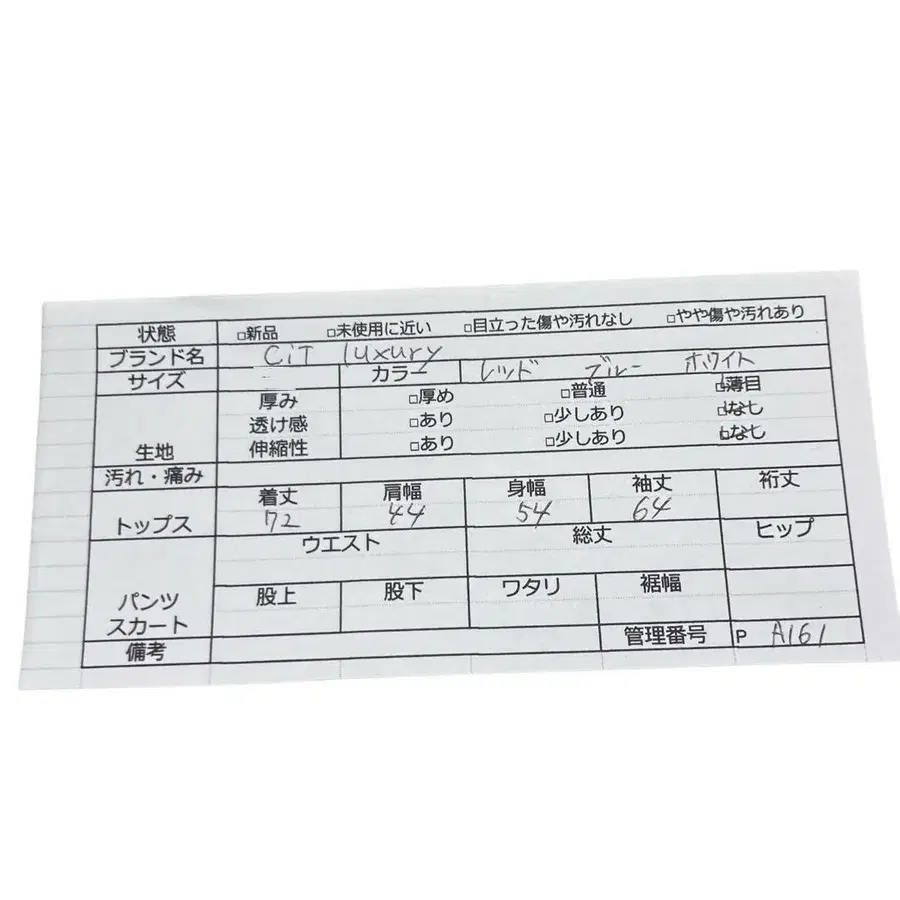 状態 □新品 □未使用に近い □目立った傷や汚れなし □やや傷や汚れあり
ブランド名 CiT luxury
サイズ カラー レッド ブルー ホワイト
生地 厚み □厚め □普通 □薄目
透け感 □あり □少しあり □なし
伸縮性 □あり □少しあり □なし
汚れ・痛み
トップス 着丈 肩幅 身幅 袖丈 裄丈
72 44 54 64
パンツ スカート ウエスト 総丈 ヒップ
股上 股下 ワタリ 裾幅
備考 管理番号 P A161